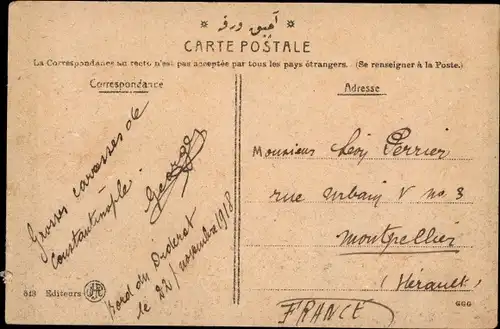 آچيق ورقه
CARTE POSTALE
La Correspondance au recto n'est pas acceptée par tous les pays étrangers. (Se renseigner à la Poste.)
Correspondance
Grosses caresses de
Constantinople.
George
Bord du Diderot
le 22/novembre 1918
Adresse
Monsieur Léon Perrier
rue Urbain V no 3
Montpellier
(Hérault)
FRANCE
Editeurs
666